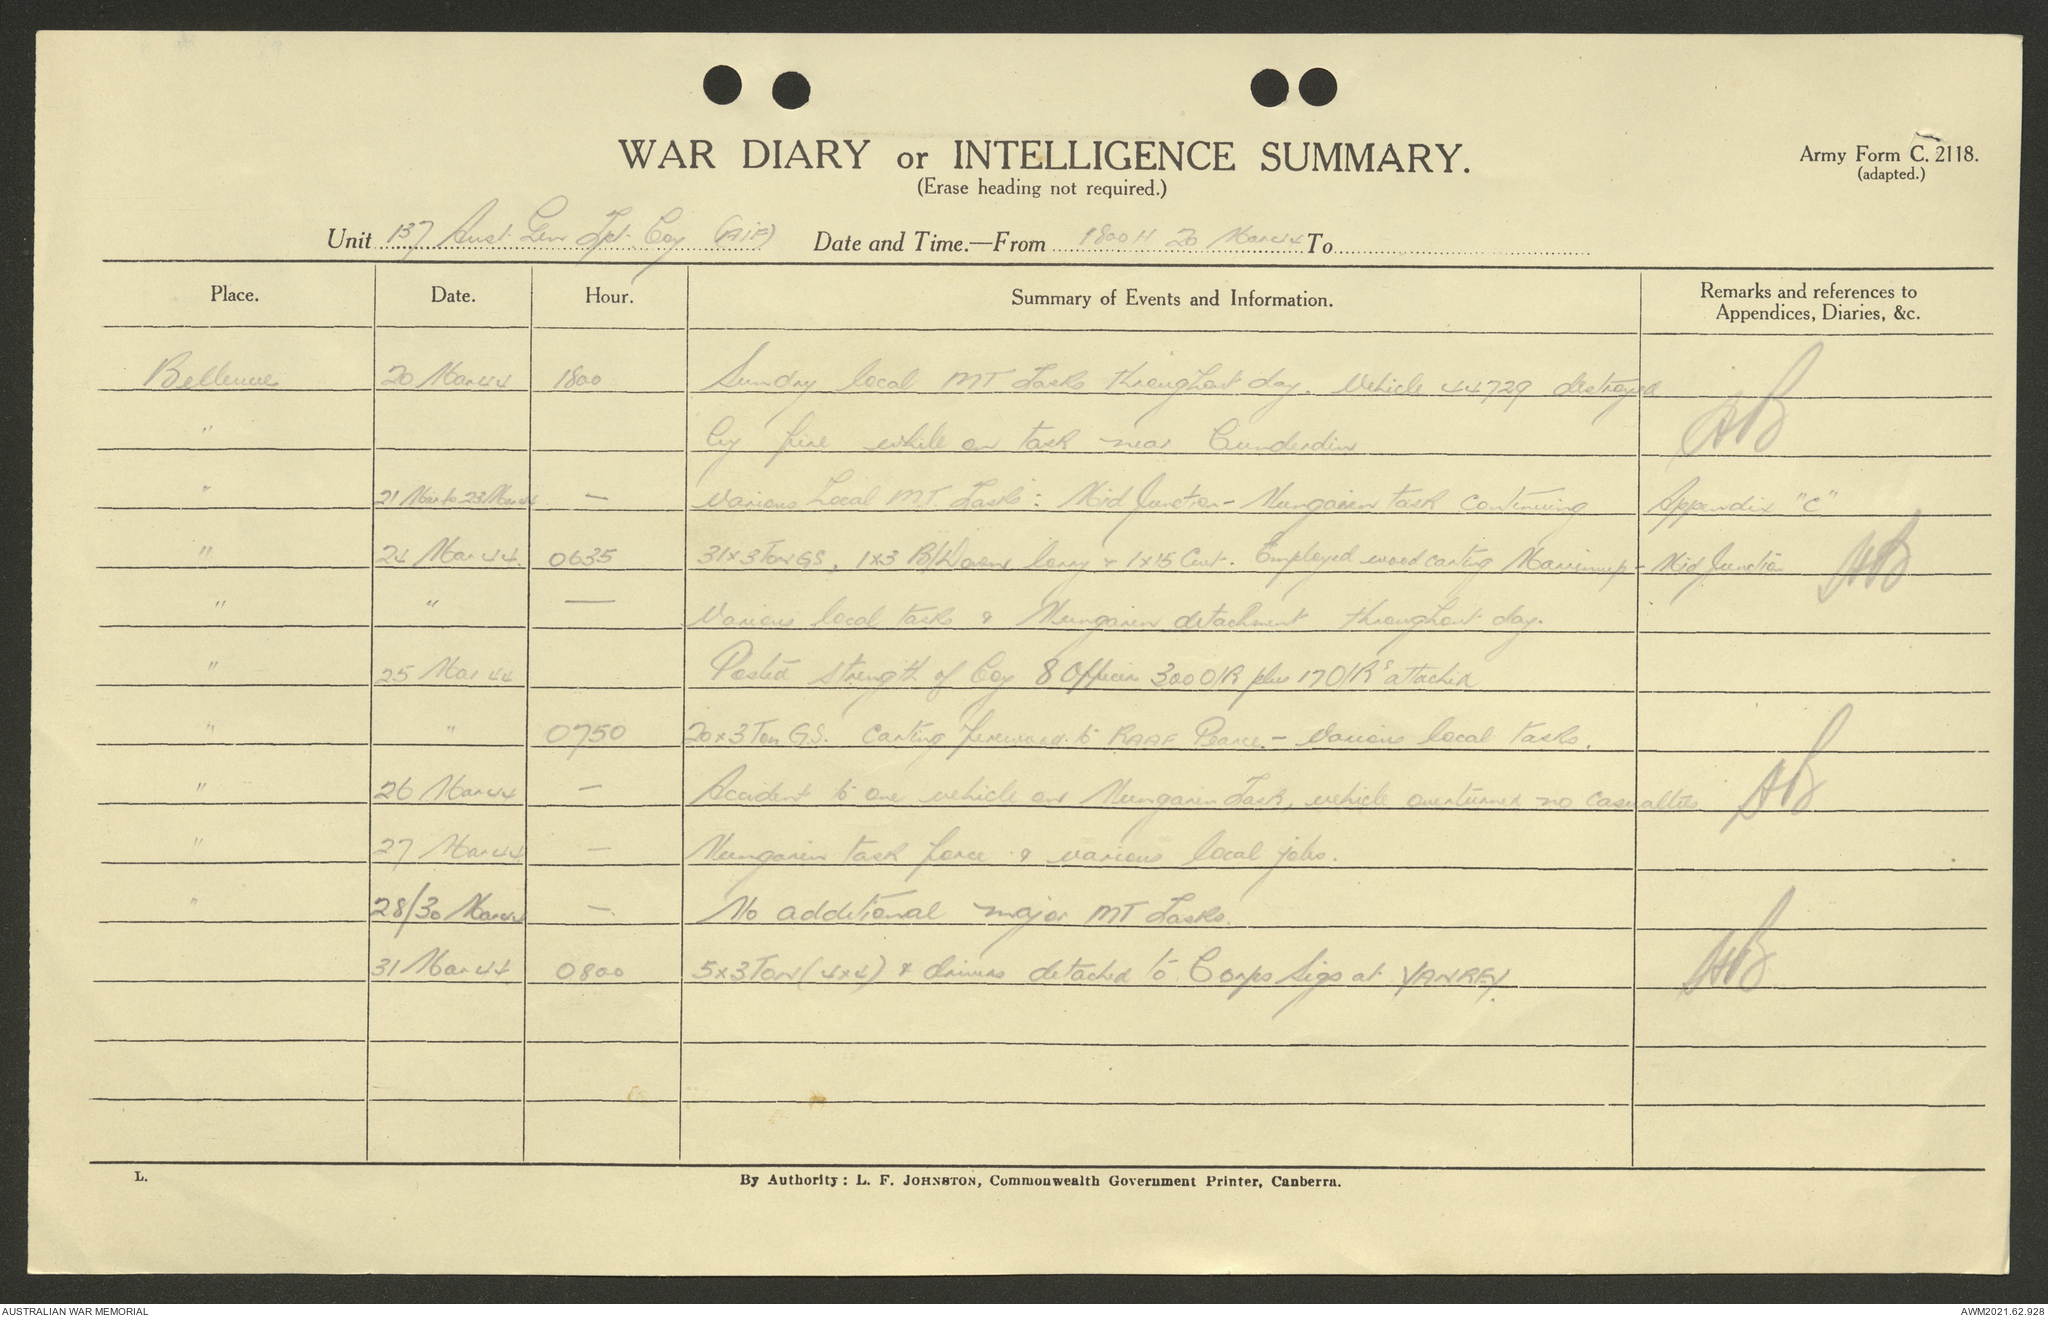 WAR DIARY or INTELLIGENCE SUMMARY.
(Erase heading not required.)
Army Form C. 2118.
(adapted.)
Unit 137 Aust. Gen Tpt. Coy (AIF) Date and Time.—From 1800H 20 Mar 44 To
Place. Date. Hour. Summary of Events and Information. Remarks and references to Appendices, Diaries, &c.
Bellevue 20 Mar 44 1800 Sundry local MT Tasks throughout day. Vehicle 44729 destroyed
" by fire while on task near Cunderdin AB
" 21 Mar to 23 Mar 44 — Various Local MT Tasks: Mid Junction - Mungarin task continuing Appendix "C"
" 24 Mar 44. 0635 31x3 Ton GS, 1x3 lorry & 1x15 Cwt. Employed wood carting Marrinup - Mid Junction AB
" " — Various local tasks & Mungarin detachment throughout day.
" 25 Mar 44 Posted strength of Coy 8 Officers 300 O/R plus 17 O/Rs attached
" " 0750 20x3 Ton G.S. carting firewood to RAAF Pearce - Various local tasks.
" 26 Mar 44 — Accident to one vehicle on Mungarin Task, vehicle overturned no casualties AB
" 27 Mar 44 — Mungarin task force & various local jobs.
" 28/30 Mar 44 — No additional major MT Tasks.
31 Mar 44 0800 5x3 Ton (4x4) & drivers detached to Corps Sigs at YANREY. AB
L.
By Authority: L. F. JOHNSTON, Commonwealth Government Printer, Canberra.
AUSTRALIAN WAR MEMORIAL
AWM2021.62.928